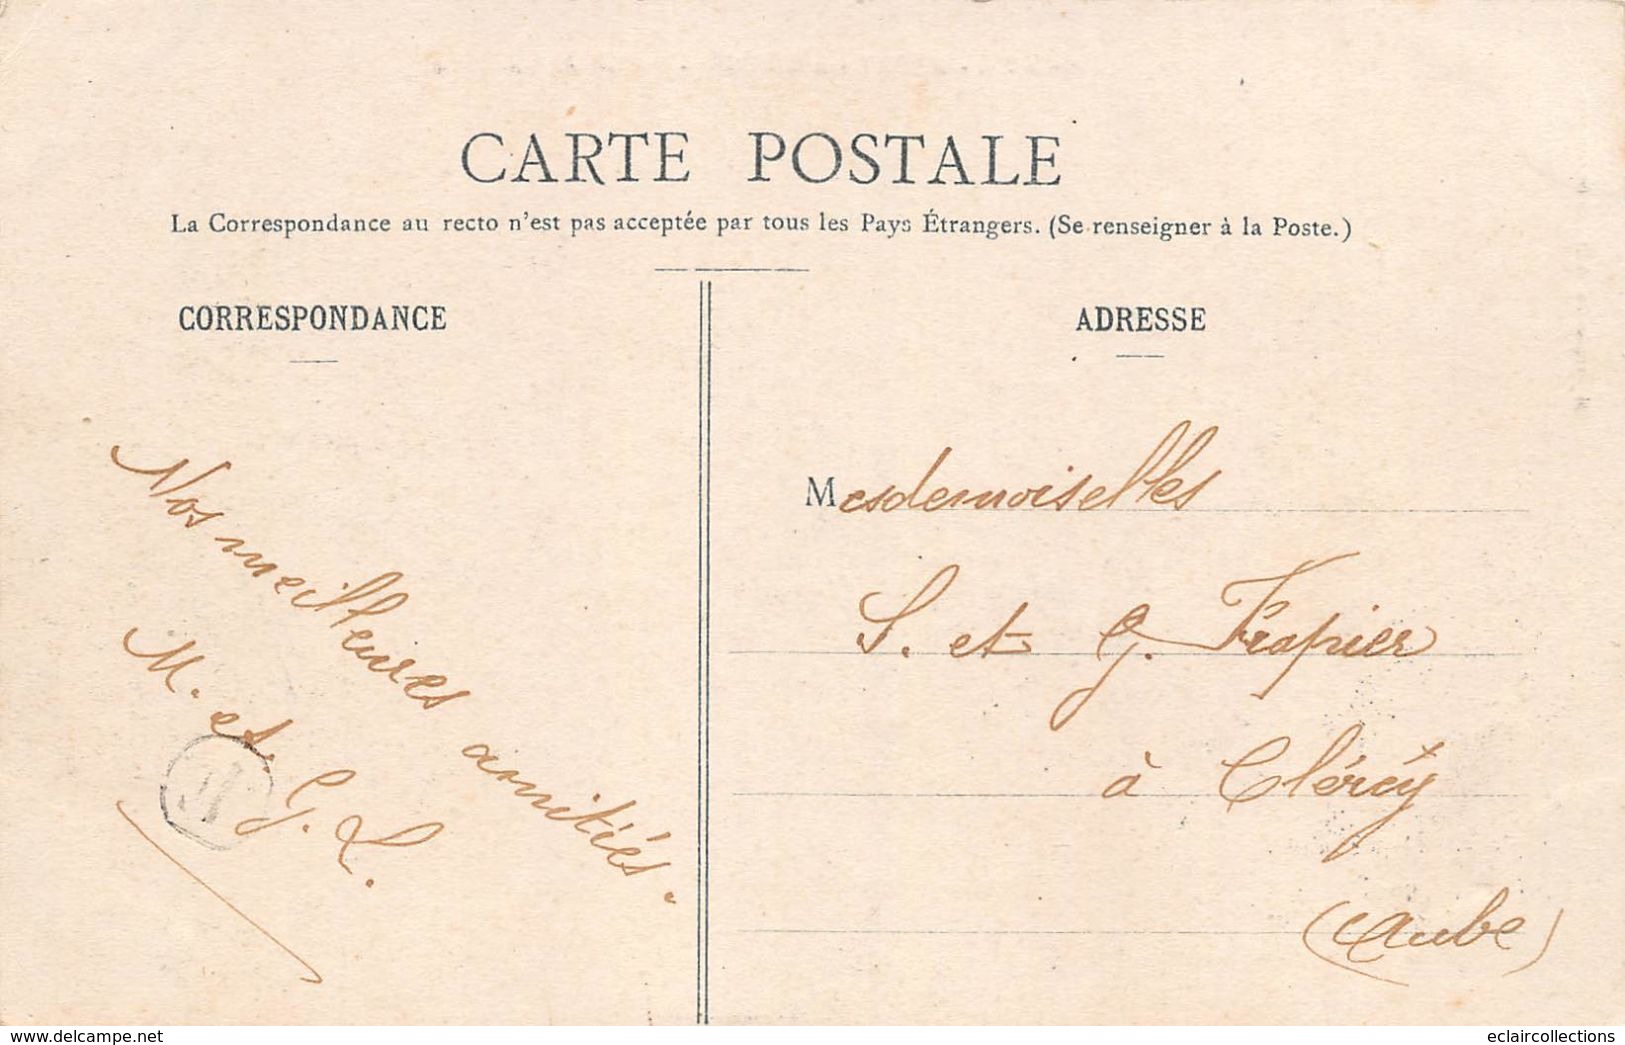 CARTE POSTALE
La Correspondance au recto n'est pas acceptée par tous les Pays Étrangers. (Se renseigner à la Poste.)
CORRESPONDANCE
Nos meilleures amitiés.
M. et G. L.
ADRESSE
Mesdemoiselles
S. et G. Frapier
à Clérey
(Aube)
www.delcampe.net
eclaircollections